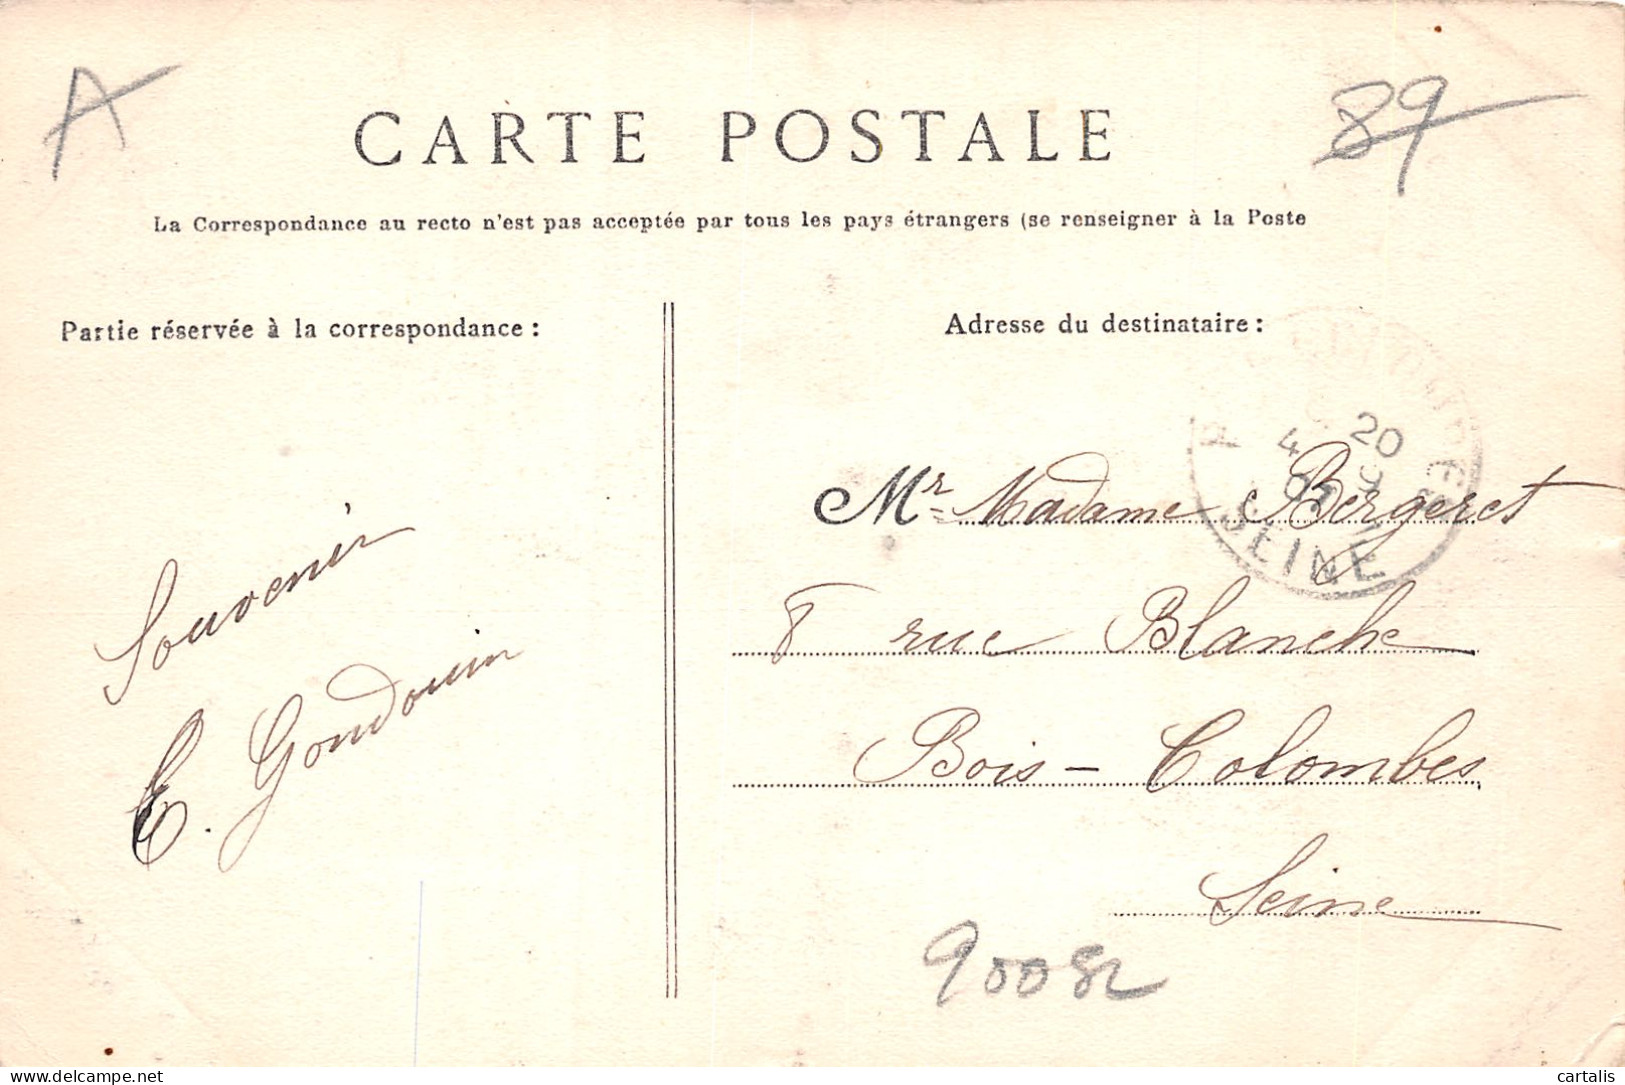 A
89
CARTE POSTALE
La Correspondance au recto n'est pas acceptée par tous les pays étrangers (se renseigner à la Poste
Partie réservée à la correspondance :
Souvenir
E. Gondouin
Adresse du destinataire :
20
4 9
SEINE
Mr Madame Bergeret
8 rue Blanche
Bois-Colombes
Seine
90082
www.delcampe.net
cartalis